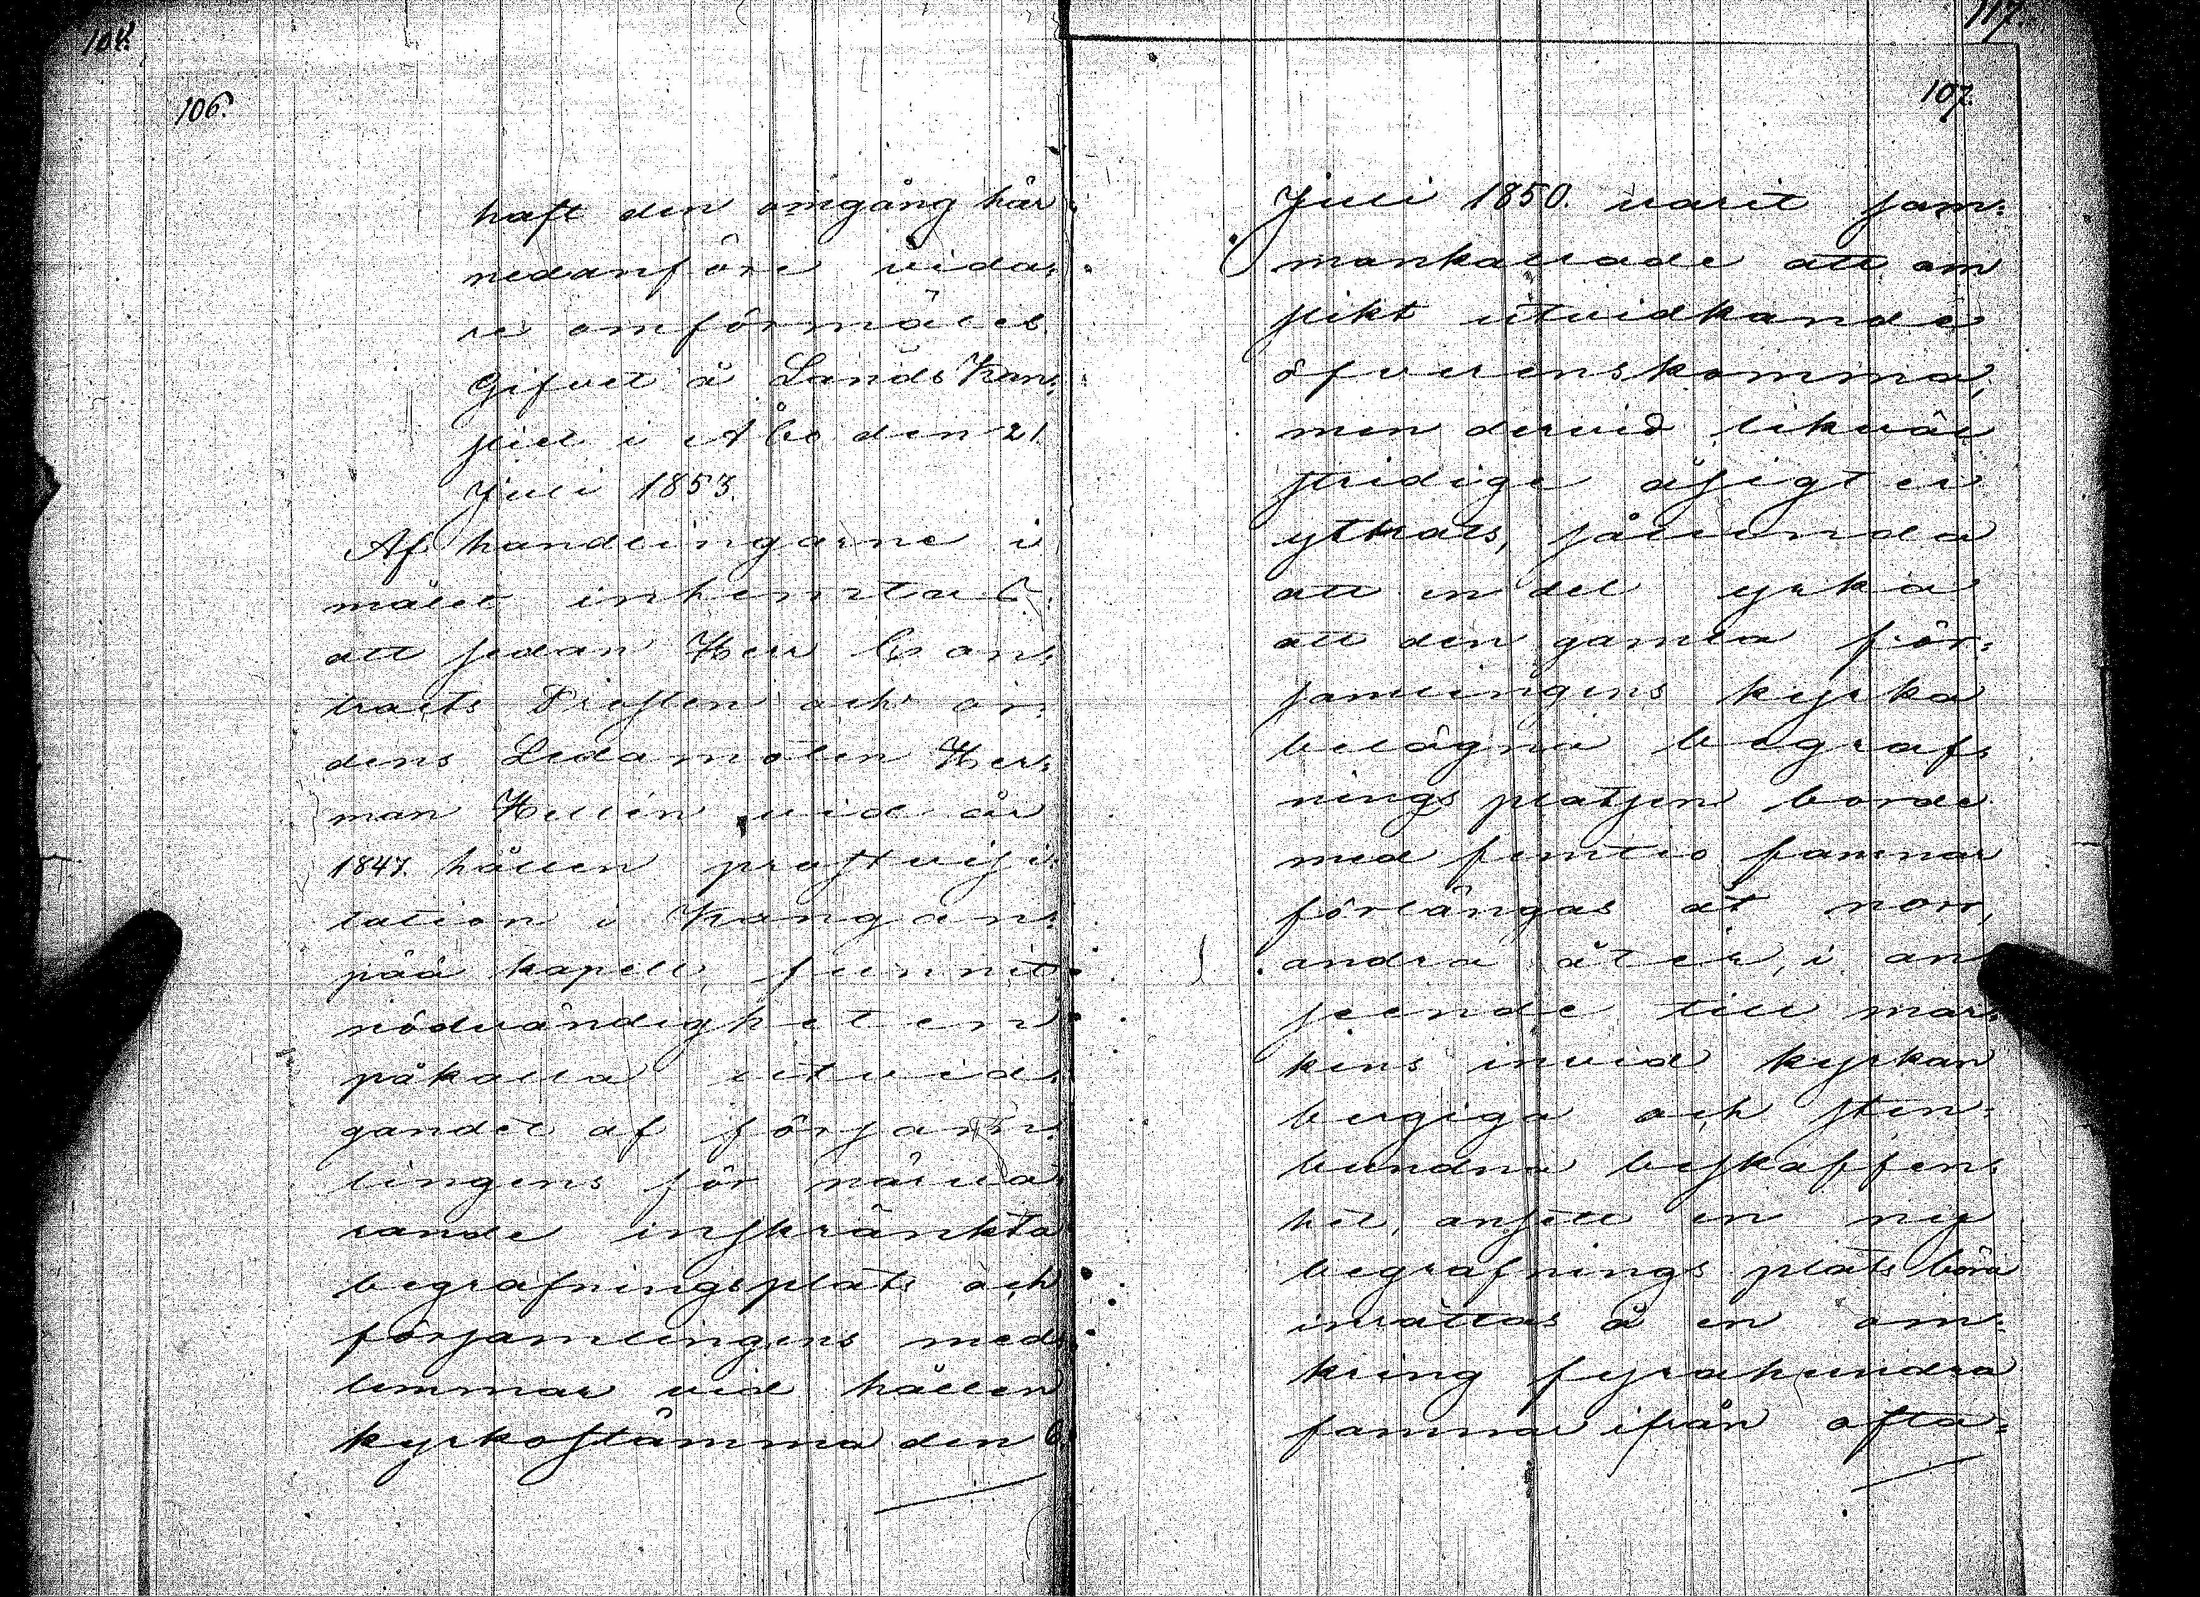 104.
106.
haft den omgång här
nedanföre vida:
re omförmäles.
Gifvet å Lands Kan:
sliet i Åbo den 21.
Juli 1853.
Af handlingarne i
målet inhemtas
att sedan Herr Con:
tracts Prosten och or:
dens Ledamoten Her:
man Hellin vid år
1847. hållen prostvisi:
tation i Kangan:
pää kapell, funnit
nödvändigheten
påkalla utvid:
gandet af försam:
lingens för närva:
rande inskränkta
begrafningsplats och
församlingens med:
lemmar vid hållen
kyrkostämma den 6.
117.
107.
Juli 1850. varit sam:
mankallade att om
slikt utvidkande
öfverenskomma,
men dervid likväl
stridige åsigter
yttrats, sålunda
att en del yrka
att den gamla för:
samlingens kyrka
belägna begraf:
nings platsen borde
med femtio famnar
förlängas åt norr,
andra åter, i an:
seende till mar:
kens invid kyrkan
bergiga och sten:
bundna beskaffen:
het, ansett en ny
begrafnings plats böra
inrättas å en om:
kring fyrahundra
famnar ifrån ofta: